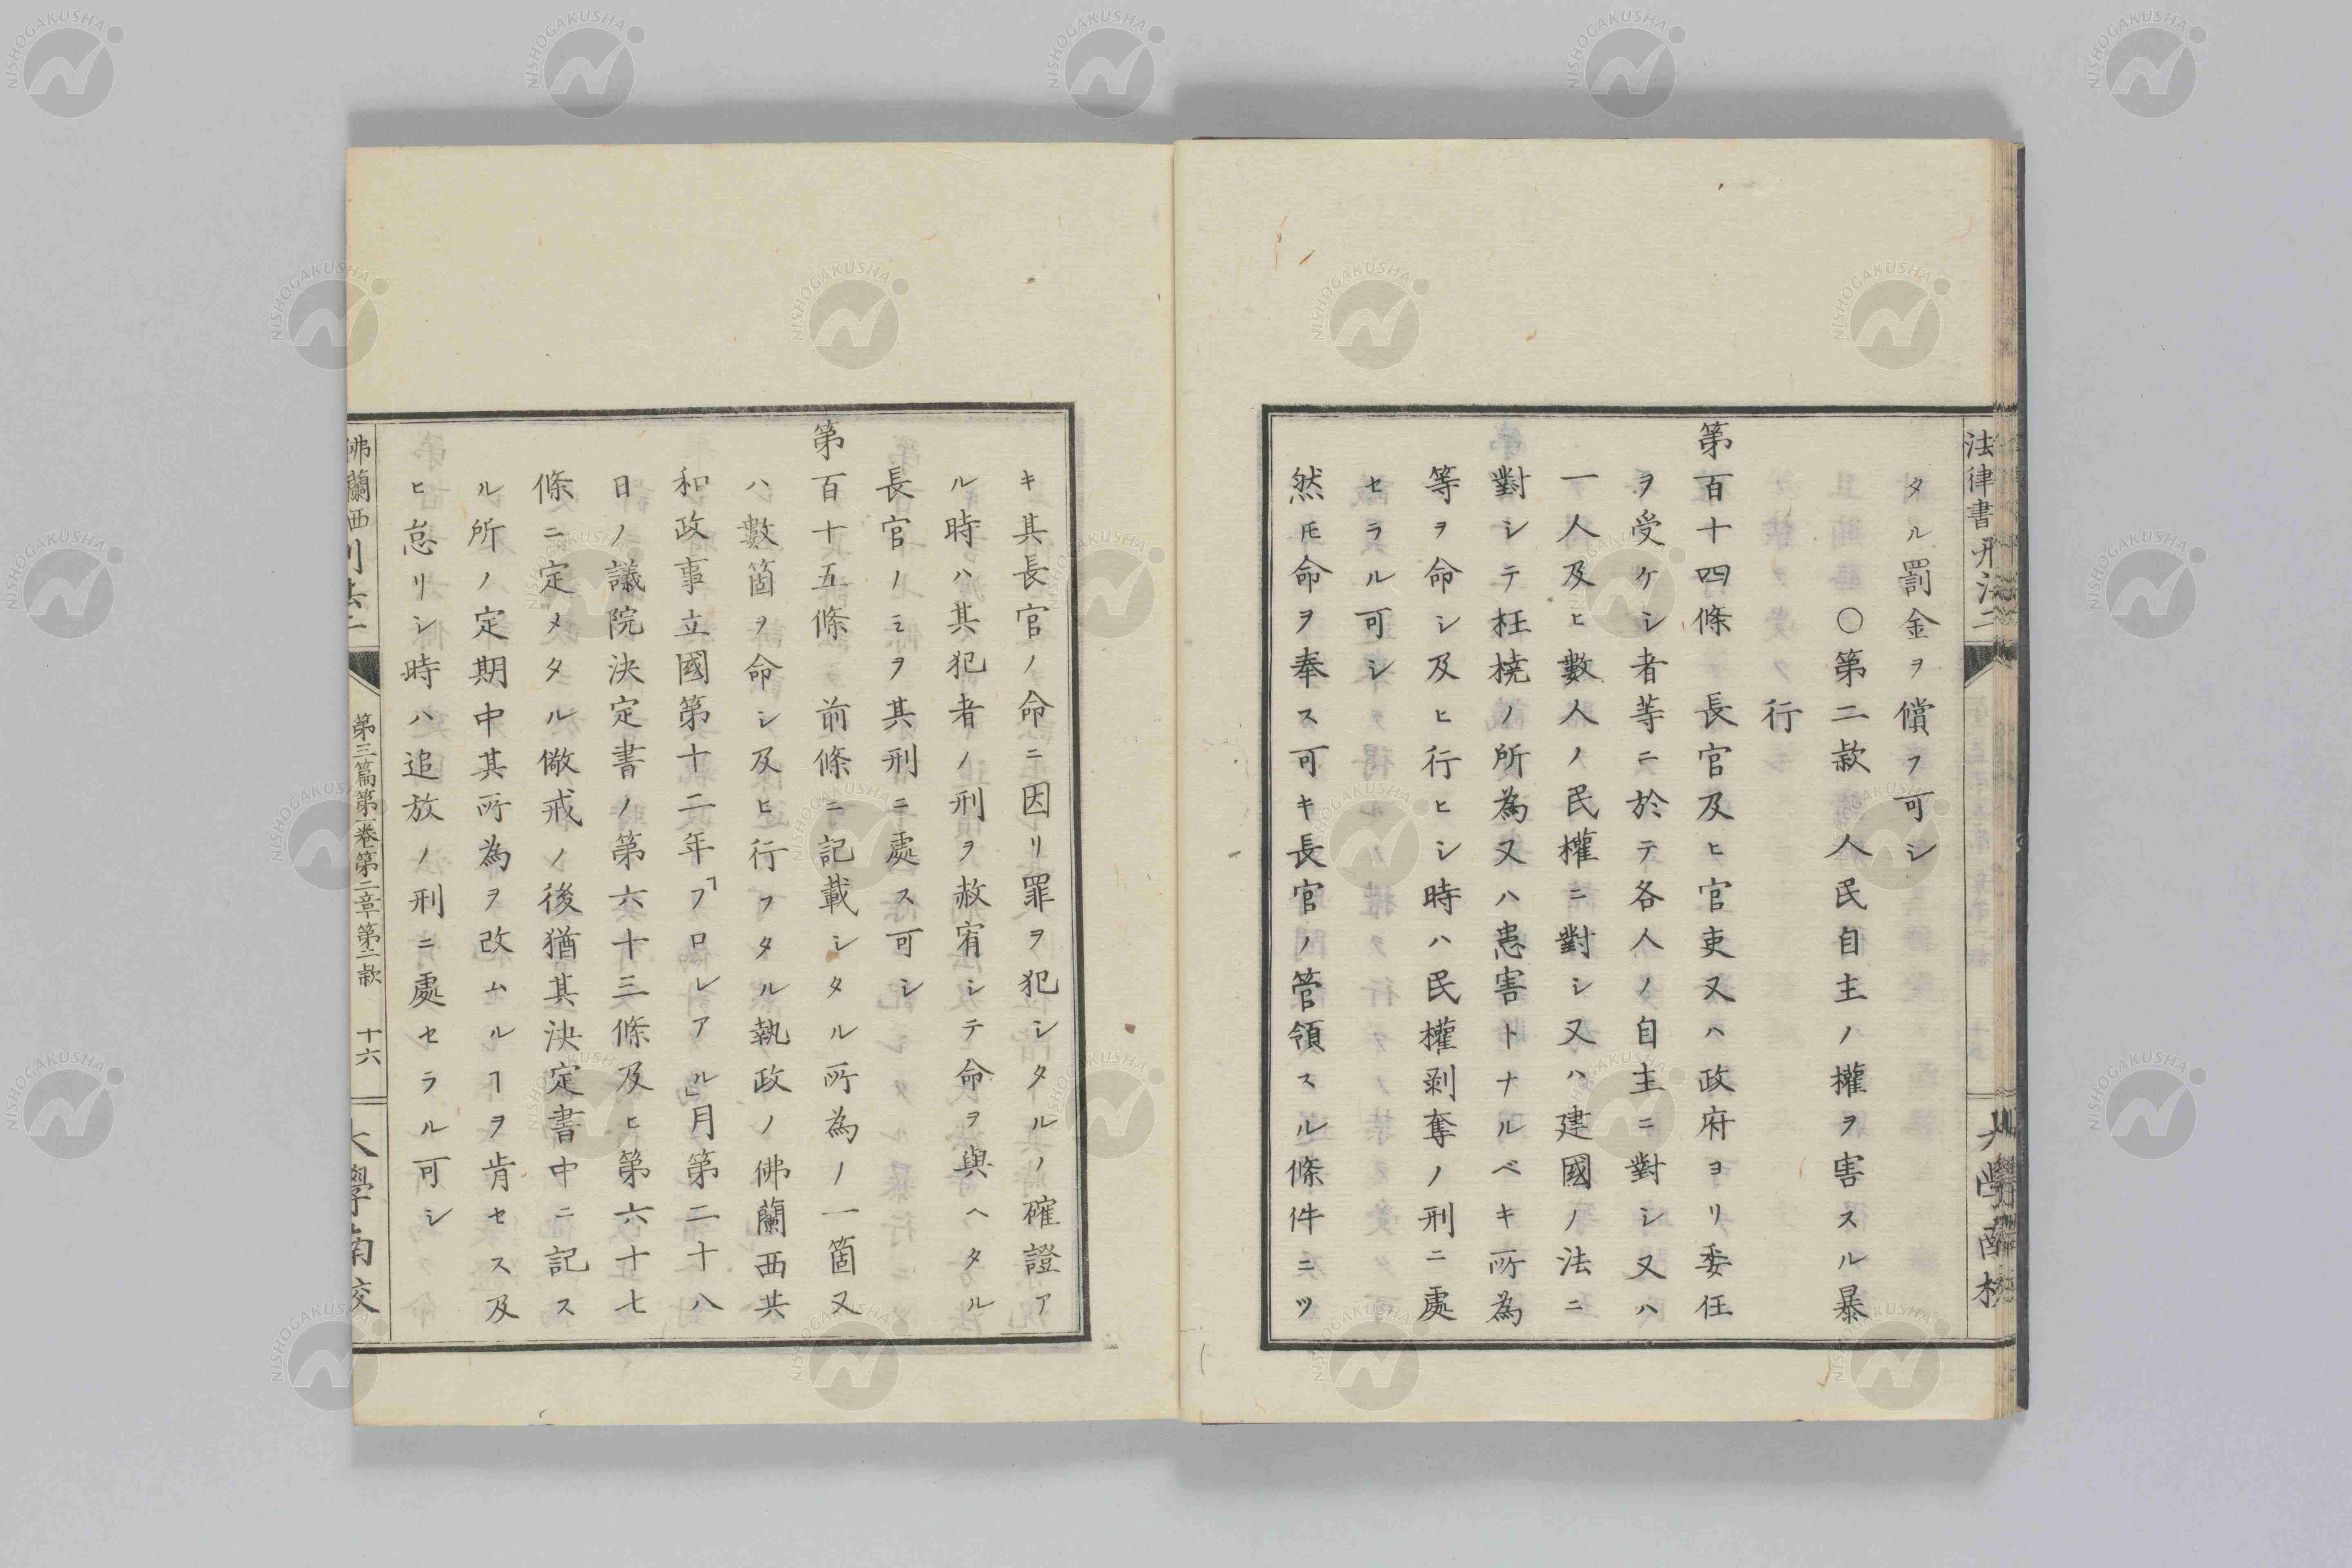 法律書刑法二
タル罰金ヲ償フ可シ
○第二款 人民自主ノ權ヲ害スル暴
行
第百十四條 長官及ヒ官吏又ハ政府ヨリ委任
ヲ受ケシ者等ニ於テ各人ノ自主ニ對シ又ハ
一人及ヒ數人ノ民權ニ對シ又ハ建國ノ法ニ
對シテ枉撓ノ所為又ハ患害トナルベキ所為
等ヲ命シ及ヒ行ヒシ時ハ民權剥奪ノ刑ニ處
セラル可シ
然𪜈命ヲ奉ス可キ長官ノ管領スル條件ニツ
キ其長官ノ命ニ因リ罪ヲ犯シタルノ確證ア
ル時ハ其犯者ノ刑ヲ赦宥シテ命ヲ與ヘタル
長官ノミヲ其刑ニ處ス可シ
第百十五條 前條ニ記載シタル所為ノ一箇又
ハ數箇ヲ命シ及ヒ行フタル執政ノ佛蘭西共
和政事立國第十二年「フロレアル」月第二十八
日ノ議院決定書ノ第六十三條及ヒ第六十七
條ニ定メタル儆戒ノ後猶其決定書中ニ記ス
ル所ノ定期中其所為ヲ改ムルヿヲ肯セス及
ヒ怠リシ時ハ追放ノ刑ニ處セラル可シ
佛蘭西刑法二
第三篇第一卷第二章第二款 十六
大學南校